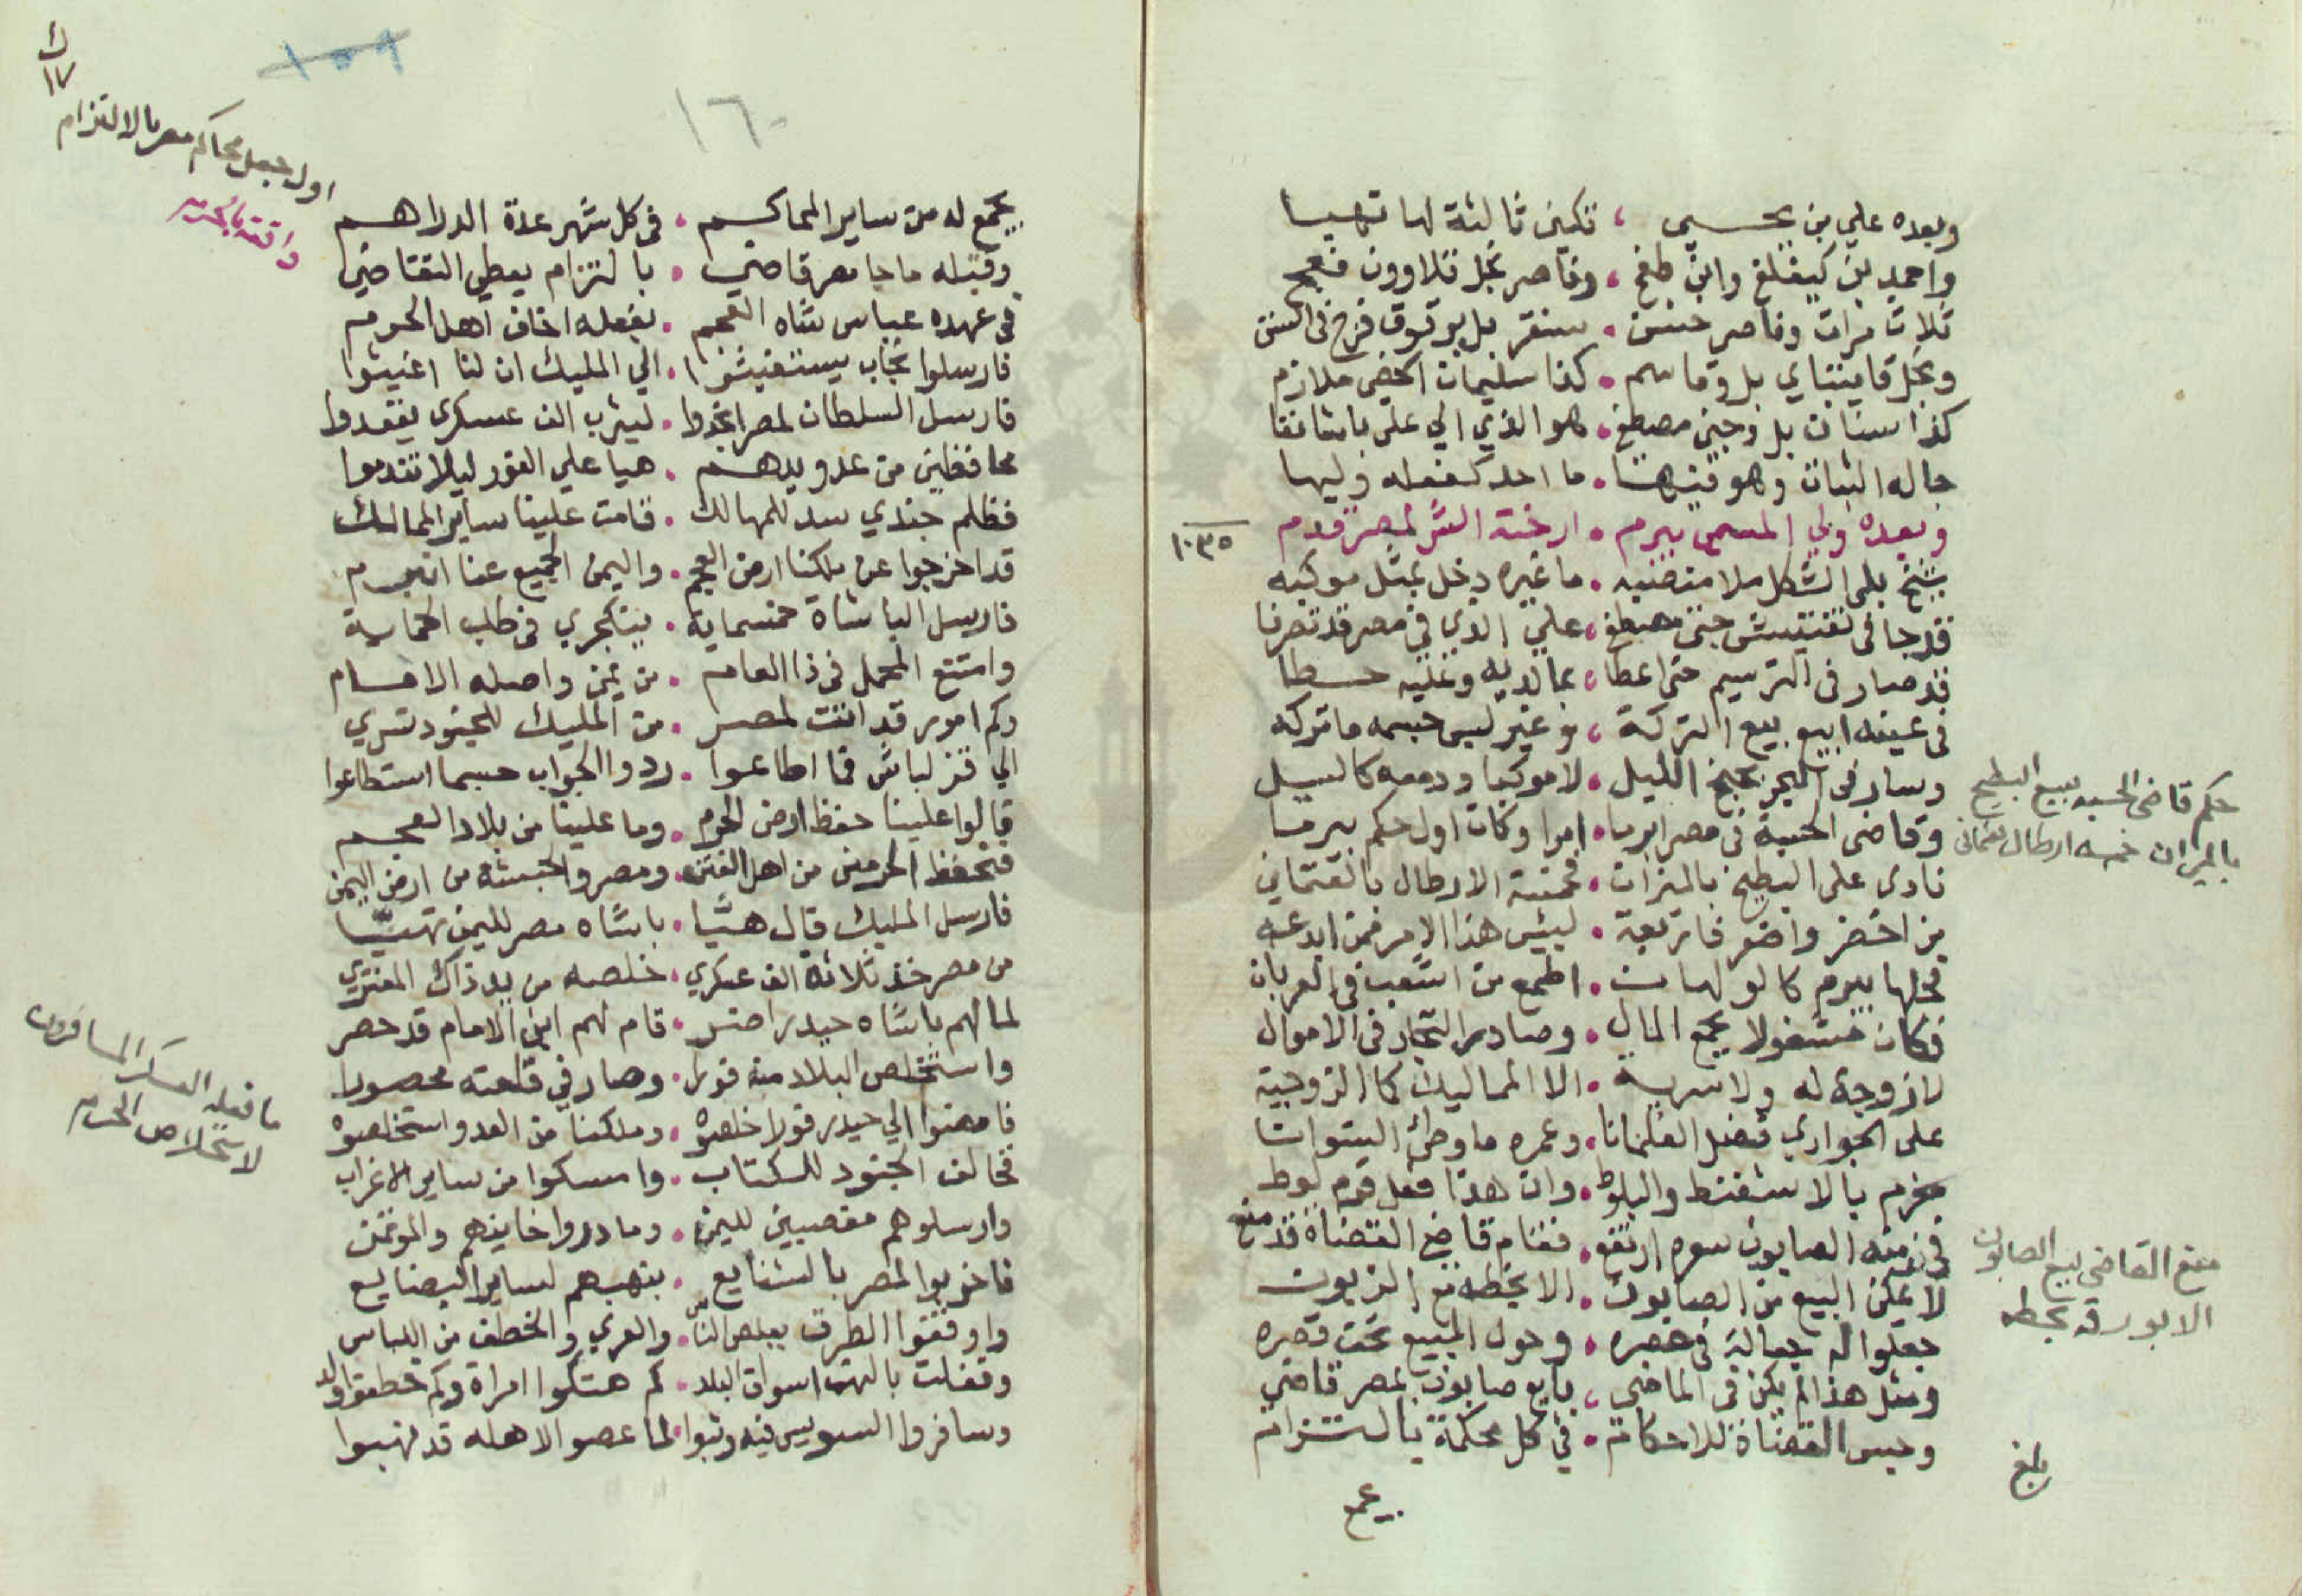 وبعده علي بن يحيى ، تكين ثالثة لها تهيا
واحمد بن كيغلغ وابن طغج ، وناصر نجل قلاوون
ثلاث مرات وناصر حسن . سنقر بل برقوق فرج في السنن
ونجل قايتباي بل وقاسم . كذا سليمان الخصي ملازم
كذا سنان بل وجيني مصطفى . هو الذي الي علي باشا
حاله اثنان وهو فيها . ما احد كفعله وليها
وبعده ولي المسمى بيرم . ارخته الشر لمصر قدم
١٠٣٥
شيخ بلى الشكل ملا منصبه . ما غيره دخل بمثل موكبه
قد جا في تفتيش جني مصطفى ، علي الذي في مصر قد تصرفا
قد صار في الترسيم حتى اعطا ، بما لديه وعليه حسطا
في عينه ابيع بيع التركة ، وغير لبس جسمه ما تركه
وسار في البحر بجنح الليل . لا موكبا ودمعه كالسيل
وقاضي الحسبة في مصر ابرما . امرا وكان اول حكم بيرما
نادى على البطيخ بالميزان . خمسة الارطال بالعثماني
من اخضر واصفر فاربعة . لبئس هذا الامر فمن ابدعه
فكان مشغولا بجمع المال . وصادر التجار في الاموال
لا زوجة له ولا سرية . الا المماليك كما الزوجية
على الجواري فضل الغلمانا . وعمره ما وطئ النسوانا
مغرم بالاشفنط والبلوط . وان هذا فعل قوم لوط
في زمنه الصابون سعره ارتفع . فقام قاضي القضاة قد منع
لا يمكن البيع من الصابون . الا بخطه مع الزبون
جعلوا له جعالة في عصره . وحول المبيع تحت قصره
ومثل هذا لم يكن في الماضي ، بايع صابون بمصر قاضي
وحبس القضاة للاحكام . في كل محكمة بالتزام
حكم قاضي الحسبه ببيع البطيخ
بالميزان خمسه ارطال بعثماني
منع القاضي بيع الصابون
الا بورقه بخطه
بلغ
يجمع
١٦٠
١٥٩
ك
١٧
اول جعل محاكم مصر بالالتزام
يجمع له من ساير المحاكم ، في كل شهر عدة الدراهم
وقبله ما جا مصر قاضي . بالتزام يعطي التقاضي
في عهده عباس شاه العجم . بفعله اخاف اهل الحرم
فارسلوا نجاب يستغيثوا . الي المليك ان لنا اغيثوا
فارسل السلطان لمصر انجدوا . ليثرب الف عسكري يفقدوا
محافظين من عدو يدهم . هيا علي الفور ليلا تندموا
فظلم جندي سد للمهالك . قامت علينا ساير الممالك
قد اخرجوا عن ملكنا ارض العجم . واليمن الجميع عنا انصرم
فارسل الباشاة خمسماية . ينكجري في طلب الحماية
وامتنع المحمل في ذا العام . من يمن واصله الامام
وكم امور قد اتت لمصر . من المليك للجنود تسري
الي قزلباش فما اطاعوا . ردوا الجواب حسبما استطاعوا
قالوا علينا حفظ ارض الحرم . وما علينا من بلاد العجم
فنحفظ الحرمين من اهل الفتن . ومصر والحبشة من ارض اليمن
فارسل المليك قال هيا . باشاه مصر لليمن تهيا
من مصر خذ ثلاثة الف عسكري . خلصه من يد ذاك المفتري
لما لهم باشاه حيدر اختبر . قام لهم ابن الامام قد حصر
واستخلص البلاد منه فورا . وصار في قلعته محصورا
فامضوا الي حيدر فورا خلصوه . وملكنا من العدو استخلصوه
فخالف الجنود للكتاب . وامسكوا من ساير الاغراب
وارسلوهم مغصبين لليمن . وما دروا خاينهم والموتمن
فاخربوا لمصر بالشنايع . بنهبهم لساير البضايع
واوقفوا الطرق بعلص الناس . والعري والخطف من اللباس
وقفلت بالنهب اسواق البلد . كم هتكوا امراة وكم خطفوا ولد
وسافروا السويس فيه وثبوا . لما عصوا لاهله قد نهبوا
ما فعله العسكر المسافرون
لاستخلاص الحرم